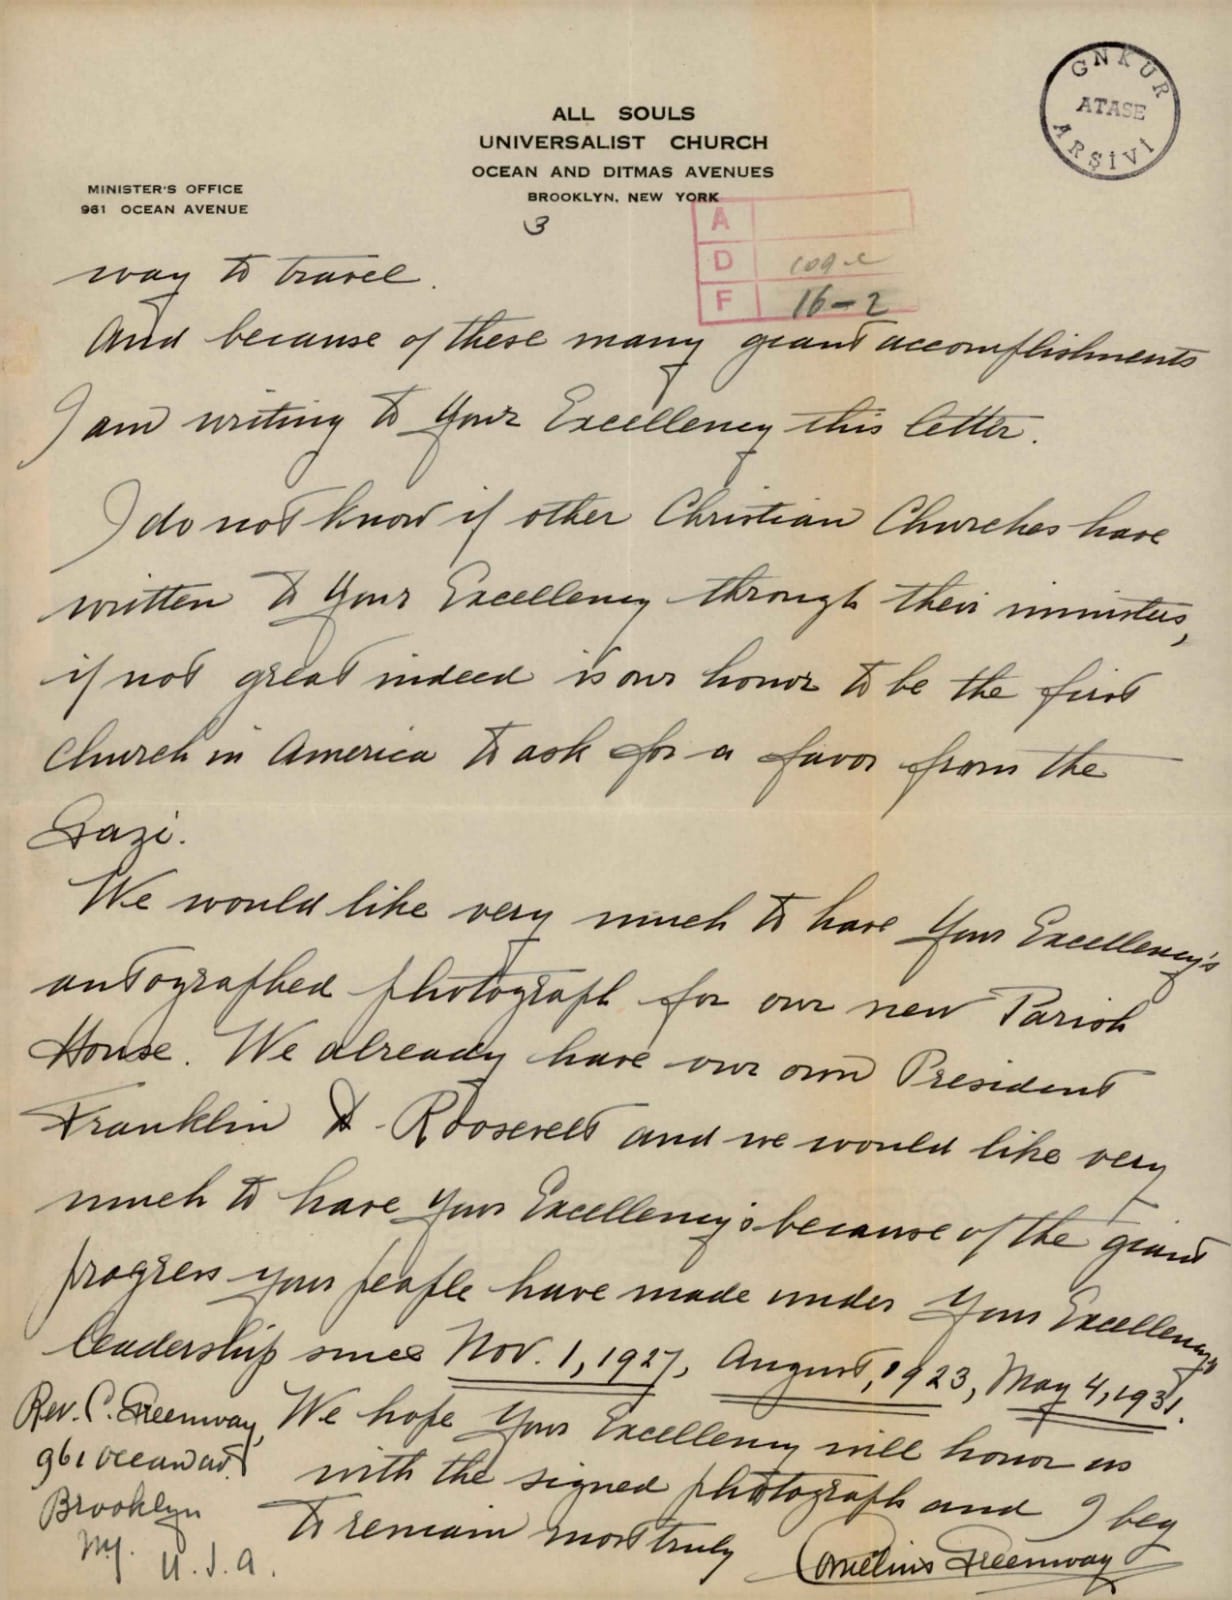 GNKUR
ATASE
ARŞİVİ
ALL SOULS
UNIVERSALIST CHURCH
OCEAN AND DITMAS AVENUES
BROOKLYN, NEW YORK
MINISTER'S OFFICE
961 OCEAN AVENUE
3
A
D
F 16-2
way to travel.
And because of these many giant accomplishments
I am writing to Your Excellency this letter.
I do not know if other Christian Churches have
written to Your Excellency through their ministers,
if not great indeed is our honor to be the first
Church in America to ask for a favor from the
Gazi.
We would like very much to have Your Excellency's
autographed photograph for our new Parish
House. We already have our own President
Franklin D. Roosevelt and we would like very
much to have Your Excellency's because of the giant
progress your people have made under Your Excellency's
leadership since Nov. 1, 1927, August, 1923, May 4, 1931.
We hope Your Excellency will honor us
with the signed photograph and I beg
to remain most truly
Cornelius Greenway
Rev. C. Greenway,
961 Ocean av.
Brooklyn
N.Y.
U.S.A.